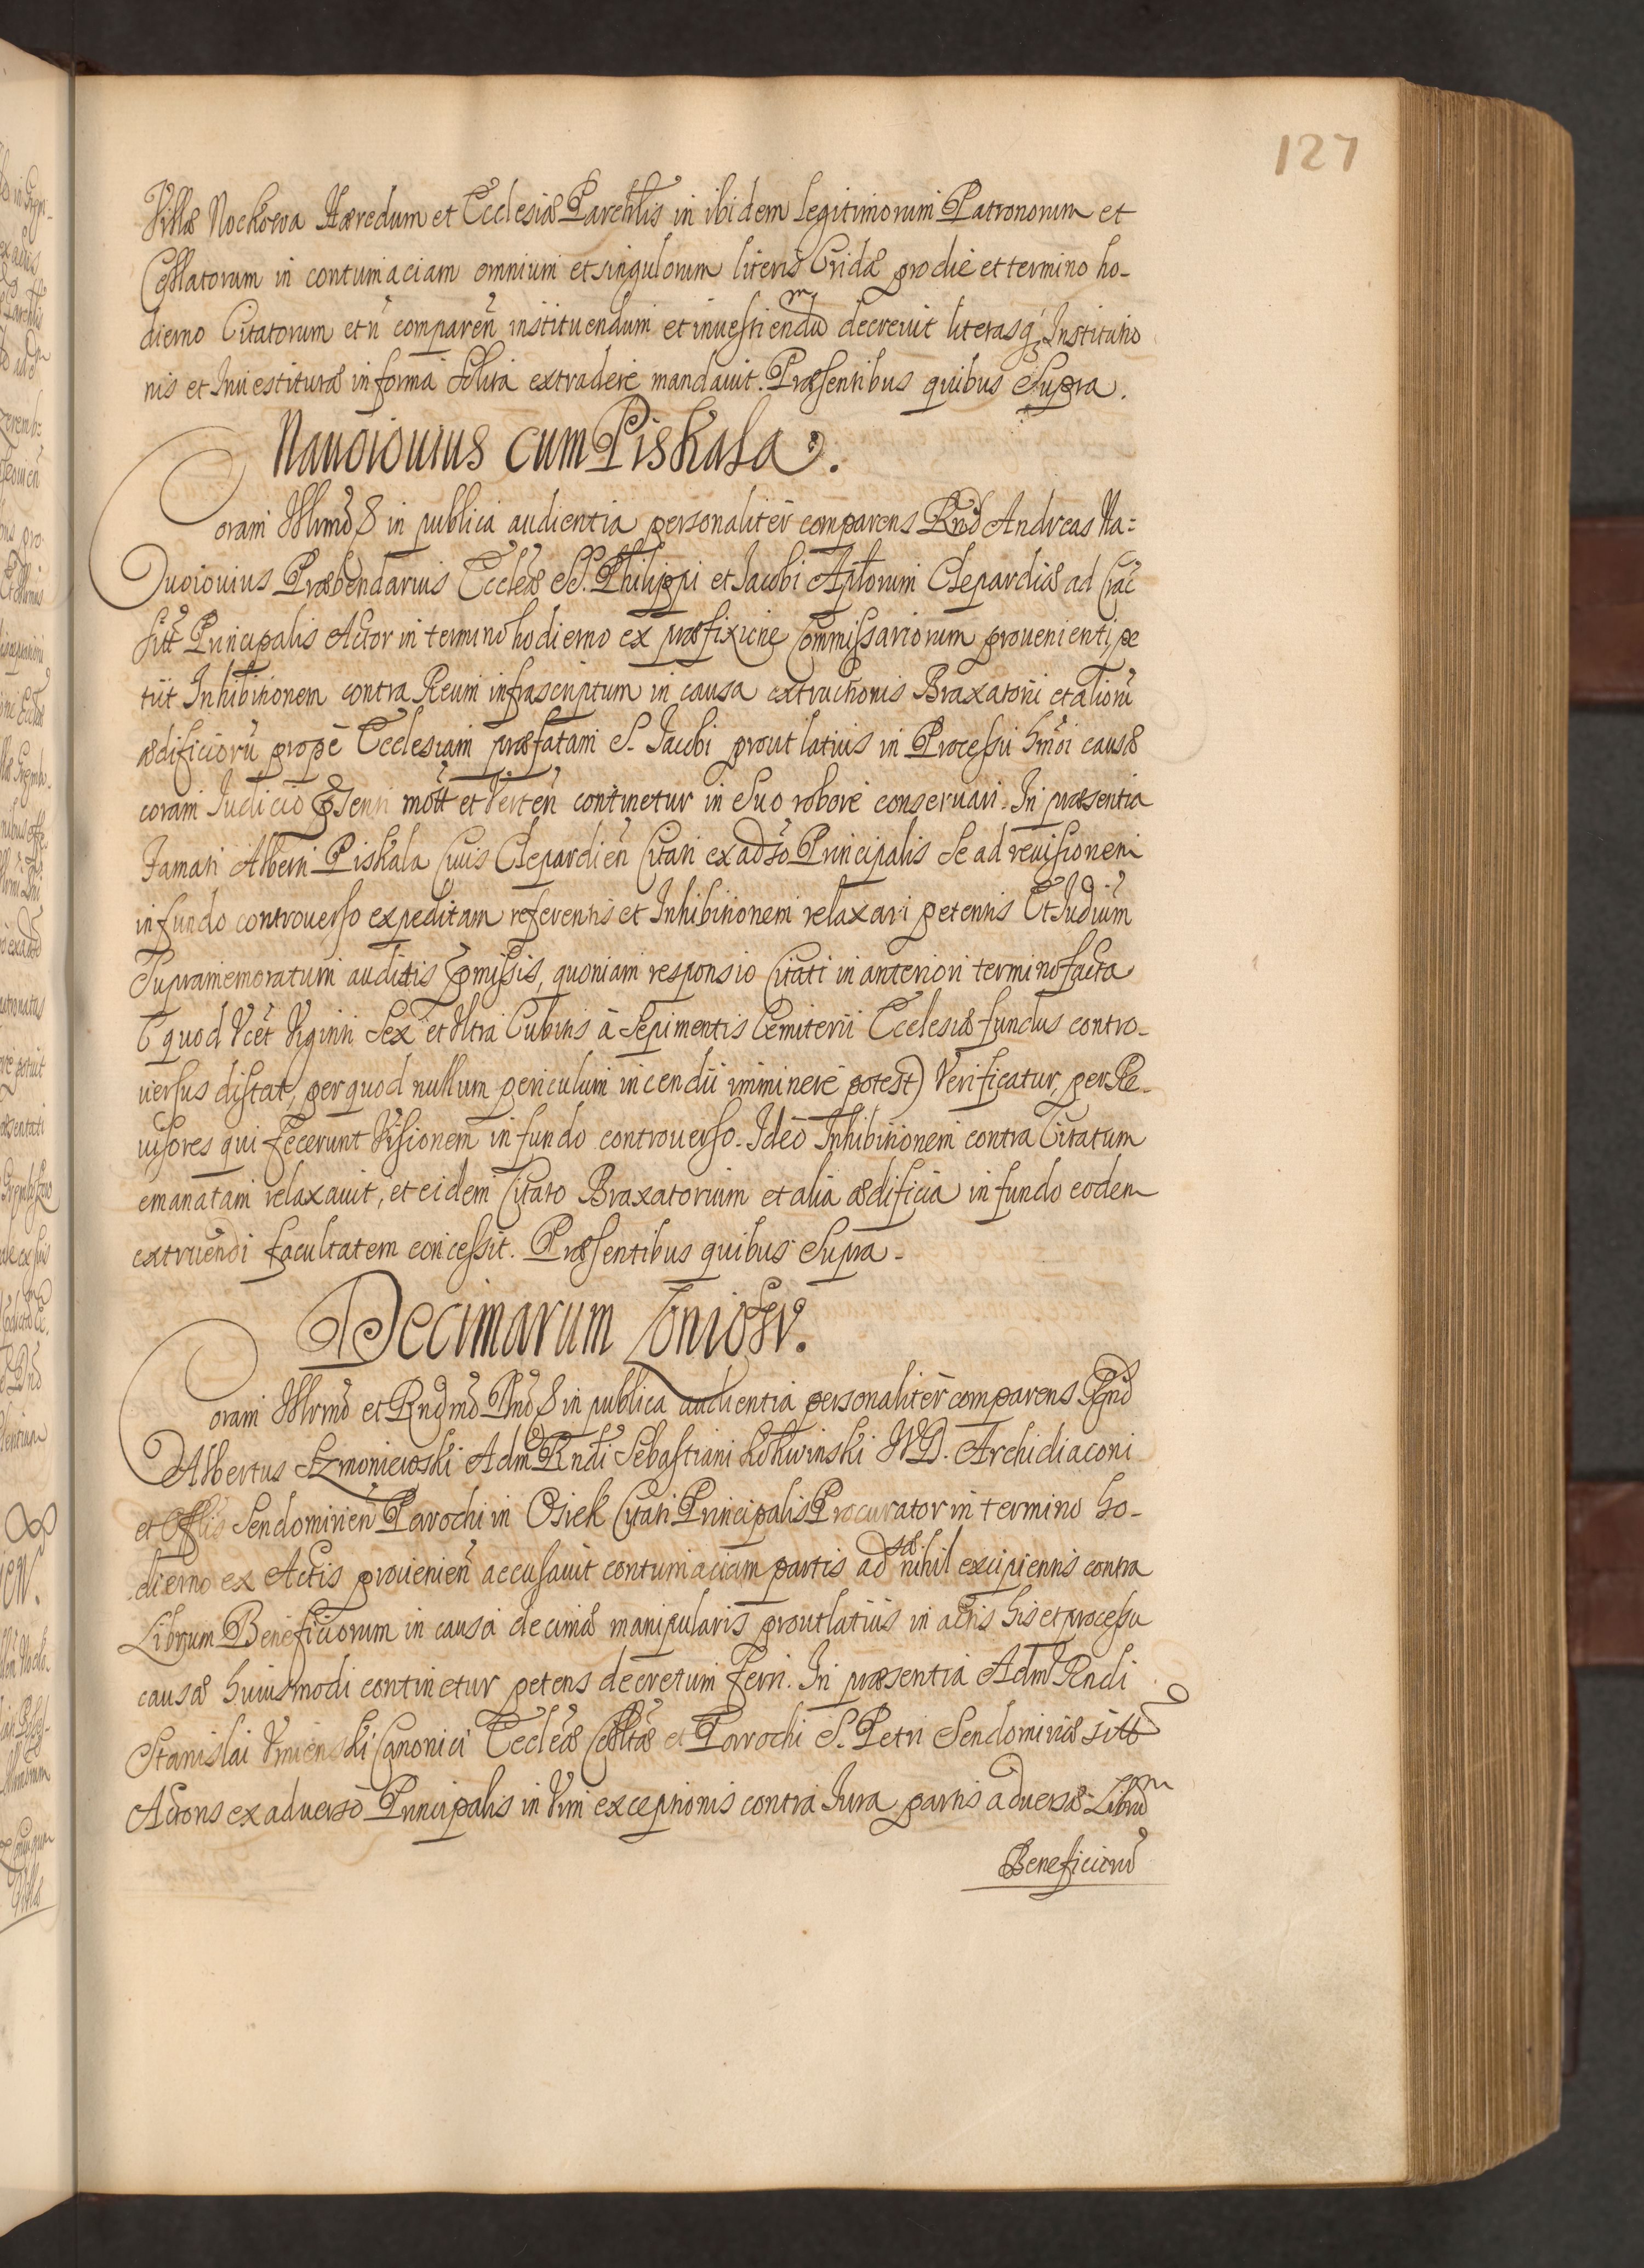 127
Villæ Nockowa Hæredum et Ecclesiæ Parchlis in ibidem legitimorum Patronorum et
Collatorum in contumaciam omnium et singulorum literis Cridæ pro die et termino ho-
dierno Citatorum et n̄ comparen̄ instituendum et inuestiendū decreuit literasq, Institutio
nis et Inuestituræ in forma solita extradere mandauit. Præsentibus quibus Supra.
cum Piskala.
Coram Illrmō in publica audientia personaliter comparens Rnd Andreas Na=
uoiouius Præbendarius Eccleæ SS. Philippi et Iacobi Aptorum Clepardiæ ad Crac̄
sitt Principalis Actor in termino hodierno ex præfixione Commissariorum prouenienti, pe
tiit Inhibitionem contra Reum infrascriptum in causa extructionis Braxatorii et aliorū
ædificiorū prope Ecclesiam præfatam S. Iacobi prout latius in Processu hmōi causæ
coram Iudicio p̄senti mott et Verten̄ continetur in suo robore conseruari. In præsentia
Famati Alberti Piskala Ciuis Clepardien̄ Citati ex adso Principalis se ad reuisionem
in fundo controuerso expeditam referentis et Inhibitionem relaxari petentis Et Iudium
Supramemoratum auditis p̄missis, quoniam responsio Citati in anteriori termino facta
(quod Vcet Viginti Sex et Vltra Cubitis à Sepimentis Cemiterii Ecclesiæ fundus contro-
uersus distat, per quod nullum periculum incendii imminere potest) Verificatur, per Re-
uisores qui fecerunt Visionem in fundo controuerso. Ideo Inhibitionem contra Citatum
emanatam relaxauit, et eidem Citato Braxatorium et alia ædificia in fundo eodem
extruendi facultatem concessit. Præsentibus quibus Supra.
Decimarum
Coram Illrmō et Rndmō Dnō in publica audientia personaliter comparens Rnd
Albertus Szmoniewski Adm Rndi Sebastiani Archidiaconi
et Offlis Sendomirien̄ Parochi in Osiek Citati Principalis Procurator in termino ho-
dierno ex Actis prouenien̄ accusauit contumaciam partis adsæ nihil excipientis contra
Librum Beneficiorum in causa decimæ manipularis prout latius in actis his et processu
causæ huiusmodi continetur petens decretum ferri. In præsentia Adm Rndi
Stanislai Vmienski Canonici Eccleæ Colltæ et Parochi S. Petri Sendomiriæ sitt
Actoris ex aduerso Principalis in Vim exceptionis contra Iura partis aduersæ Librū
Beneficiorū